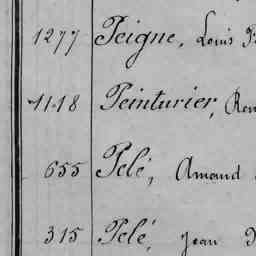 1277 Peigne, Louis
1118 Peinturier,
655 Pelé, Amand
315 Pelé, Jean